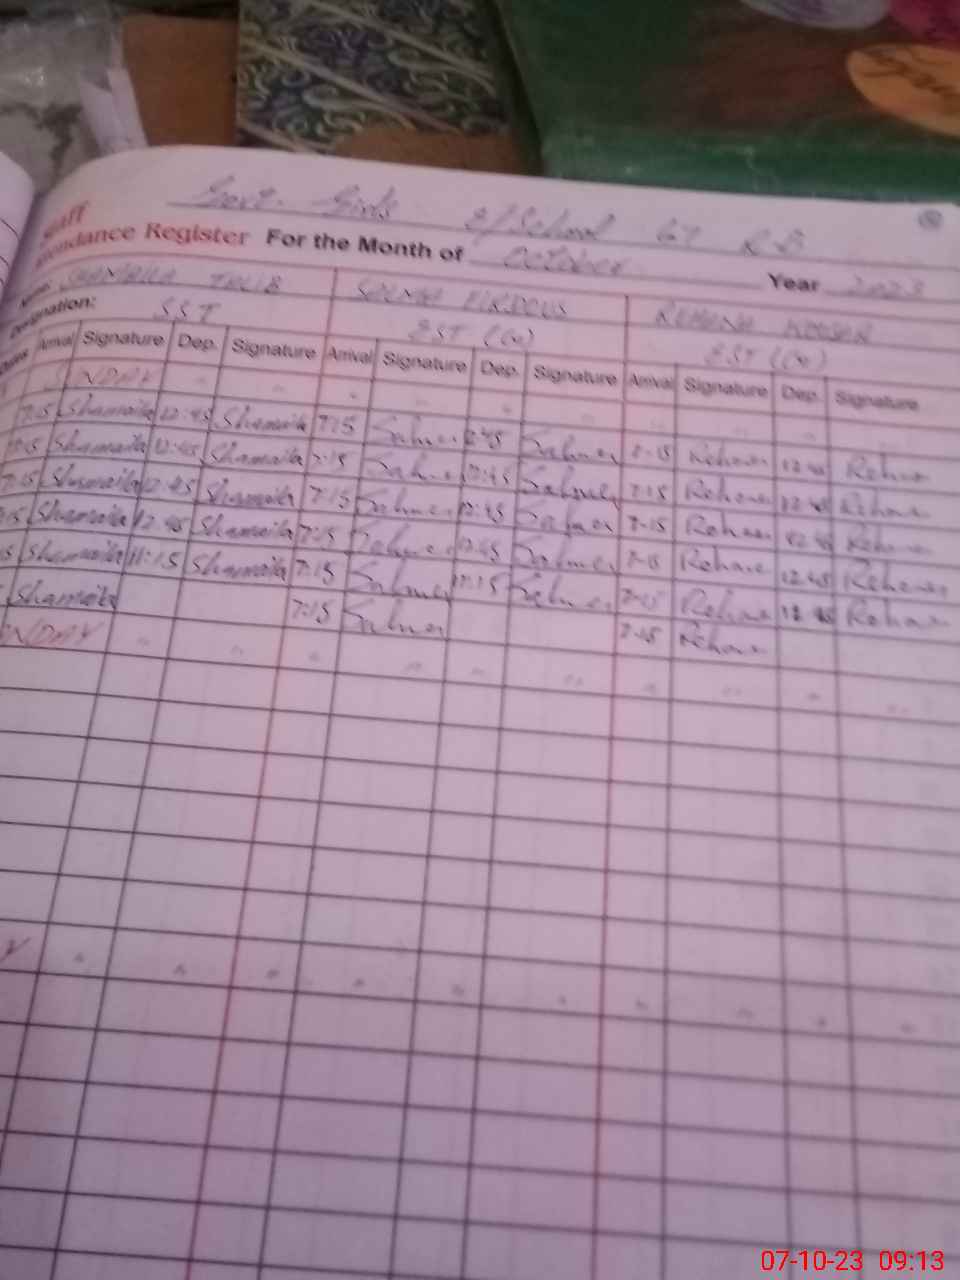 Govt. Girls E/School 67 R.B
Staff
Attendance Register For the Month of October Year 2023
Name: SHAMAILA TALIB SALMA FIRDOUS REHANA KOUSAR
Designation: SST EST (W) EST (W)
Arrival Signature Dep. Signature Arrival Signature Dep. Signature Arrival Signature Dep. Signature
SUNDAY
7:15 Shamaila 12:45 Shamaila 7:15 Salma 12:45 Salma 7-15 Rehana 12:45 Rehana
7:15 Shamaila 12:45 Shamaila 7:15 Salma 12:45 Salma 7:15 Rehana 12:45 Rehana
7:15 Shamaila 12:45 Shamaila 7:15 Salma 12:45 Salma 7-15 Rehana 12:45 Rehana
7:15 Shamaila 12:45 Shamaila 7:15 Salma 12:45 Salma 7-15 Rehana 12:45 Rehana
Shamaila 11:15 Shamaila 7:15 Salma 11:15 Salma 7-15 Rehana Rehana
Shamaila 7:15 Salma 7-15 Rehana
SUNDAY
07-10-23 09:13